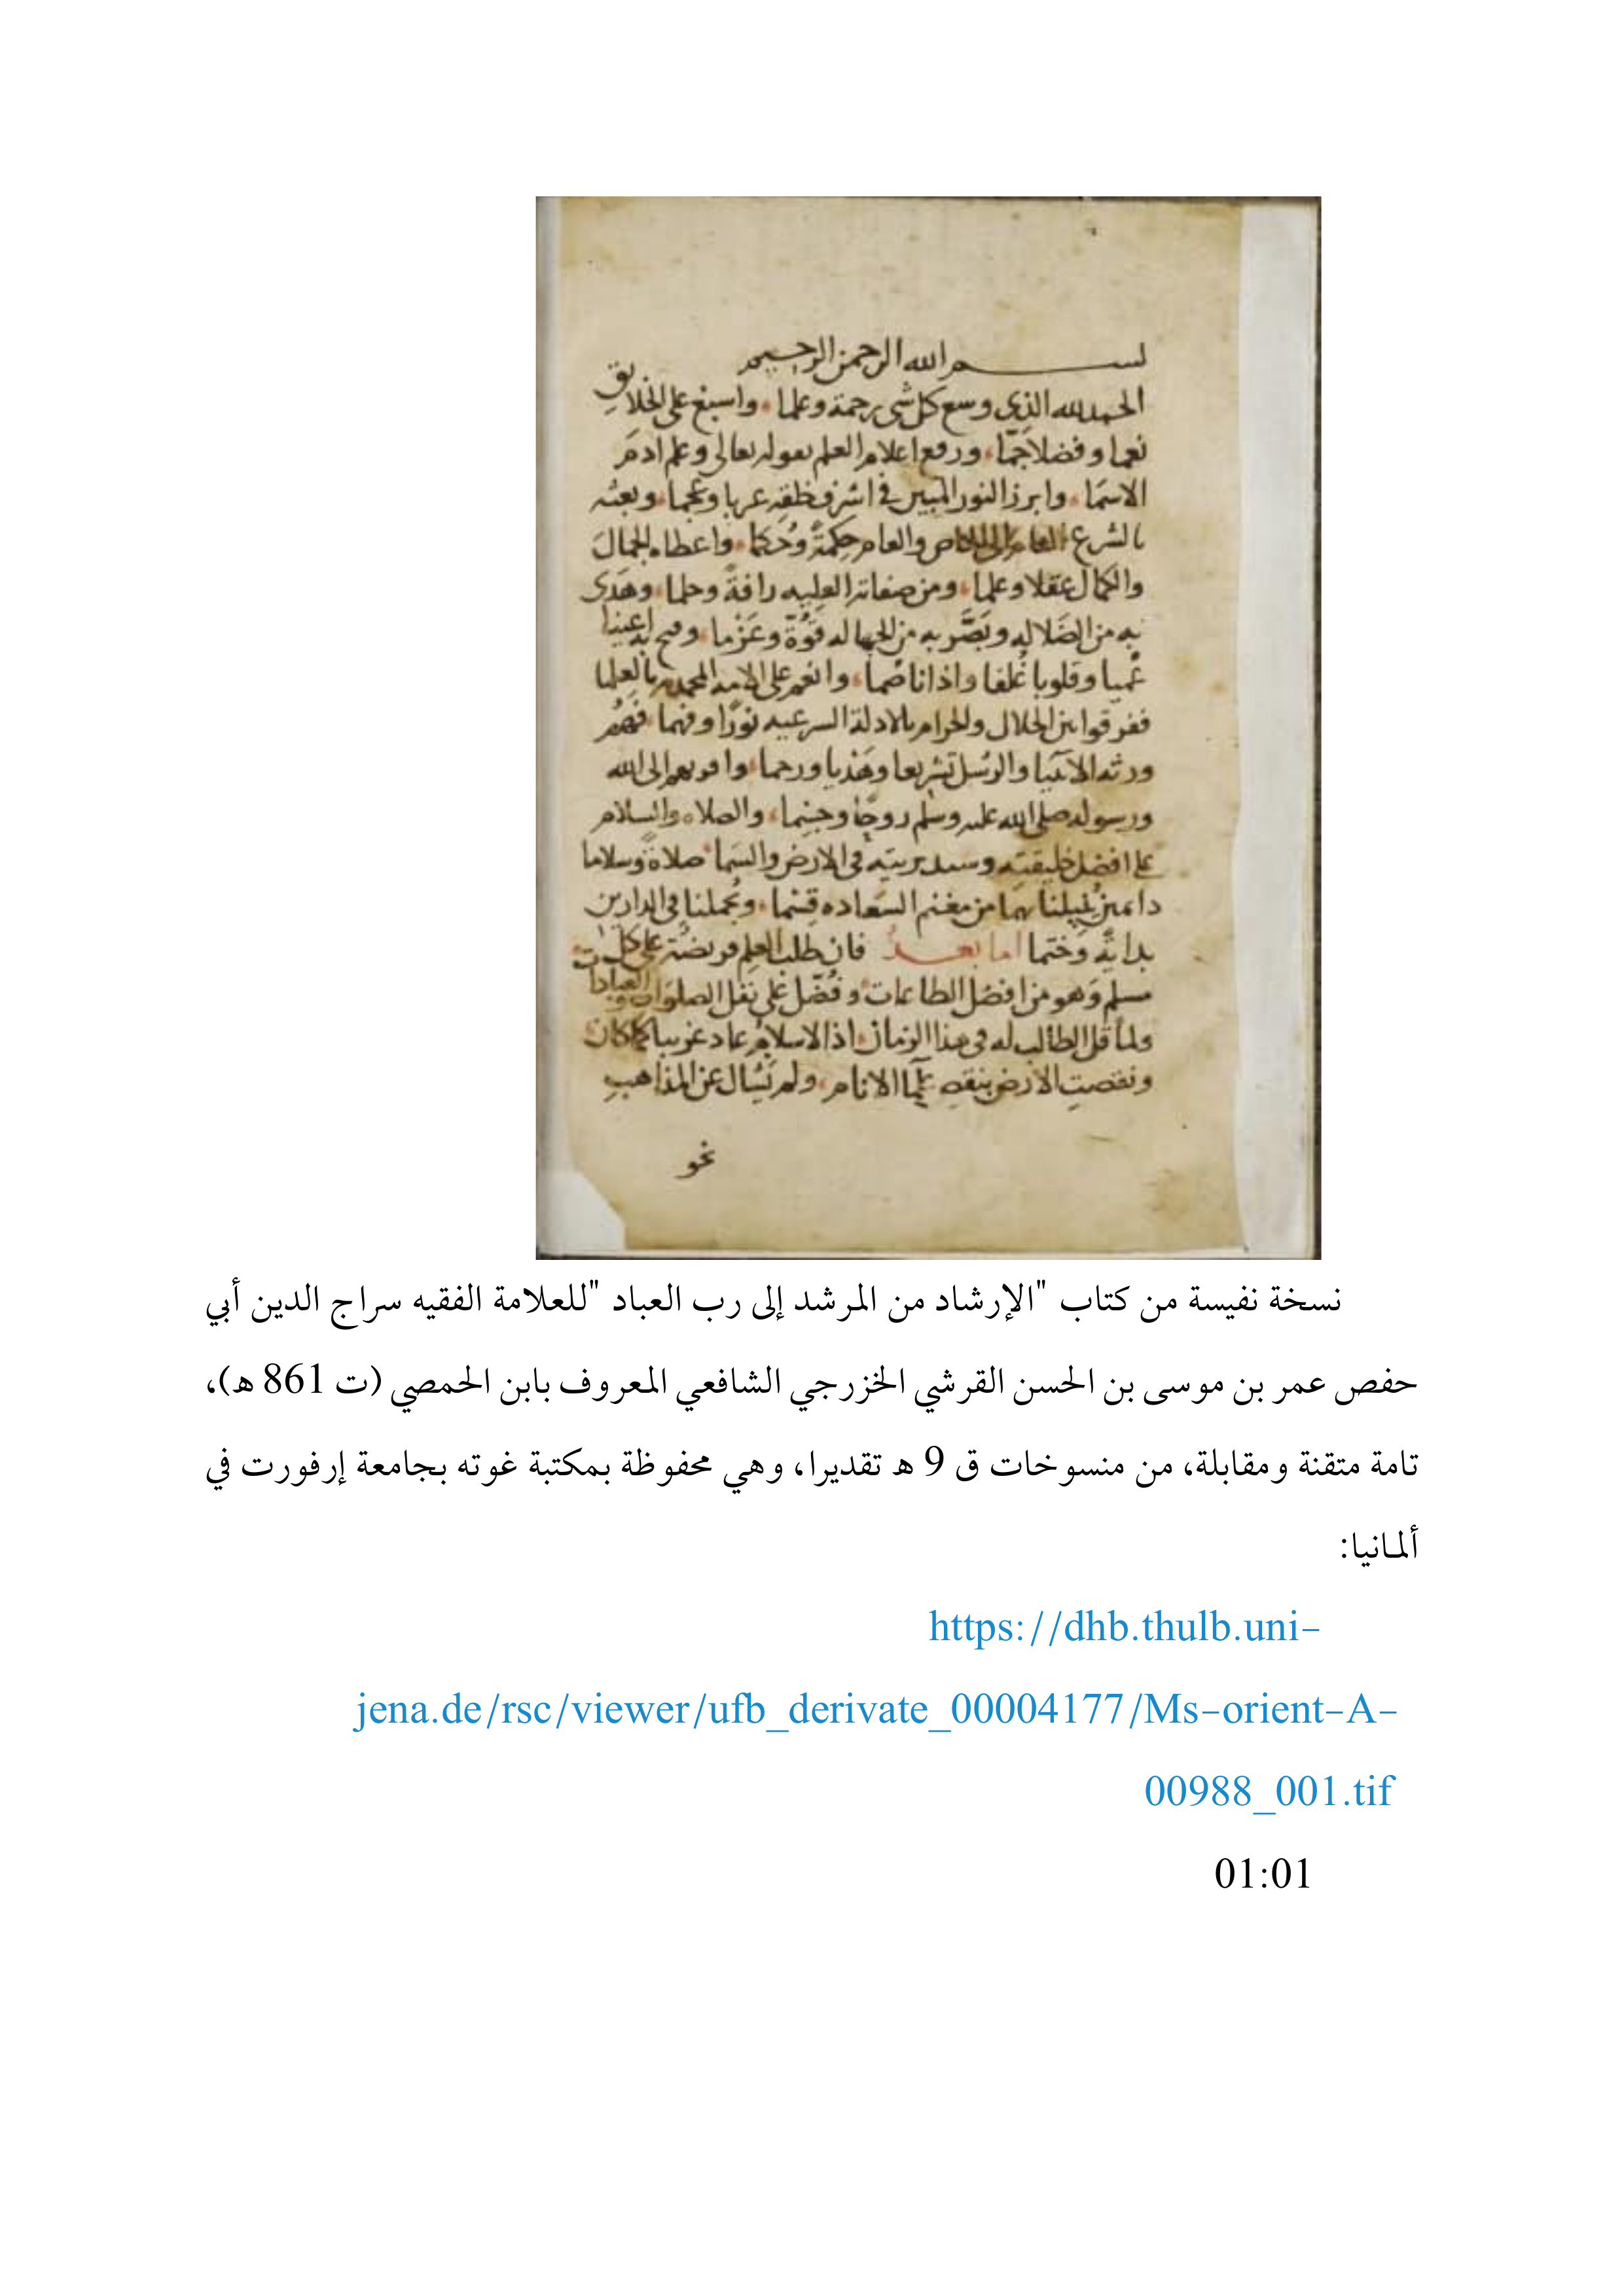 بسم الله الرحمن الرحيم
الحمد لله الذي وسع كل شي رحمة وعلما واسبغ على الخلايق
نعما وفضلا جما ورفع اعلام العلم بقوله تعالى وعلم ادم
الاسما وابرز النور المبين في اشرف خلقه عربا وعجما وبعثه
بالشرع العام الى الخاص والعام حكمة وحكما واعطاه الجمال
والكمال عقلا وعلما ومن صفاته العليه رافة وحلما وهدى
به من الضلاله وبصر به من الجهاله قوة وعزما وفتح به اعينا
عميا وقلوبا غلفا واذانا صما وانعم على الامه المحمديه بالعلما
ففرقوا بين الحلال والحرام بالادلة الشرعيه نورا وفهما فهم
ورثه الانبيا والرسل تشريعا وهديا ورحما واقربهم الى الله
ورسوله صلى الله عليه وسلم روحا وجسما والصلاه والسلام
على افضل خليقته وسيد بريته في الارض والسما صلاة وسلاما
دايمين ينيلنا بهما من مغنم السعاده قسما ويجملنا في الدارين
بداية وختما اما بعد فان طلب العلم فريضة على كل
مسلم وهو من افضل الطاعات وفضل على نفل الصلوات والعبادات
ولما قل الطالب له في هذا الزمان اذ الاسلام عاد غريبا كما كان
ونقصت الارض بنقص علما الانام ولم يسال عن المذاهب
نحو
نسخة نفيسة من كتاب "الإرشاد من المرشد إلى رب العباد "للعلامة الفقيه سراج الدين أبي
حفص عمر بن موسى بن الحسن القرشي الخزرجي الشافعي المعروف بابن الحمصي (ت 861 ه)،
تامة متقنة ومقابلة، من منسوخات ق 9 ه تقديرا، وهي محفوظة بمكتبة غوته بجامعة إرفورت في
ألمانيا:
https://dhb.thulb.uni-
jena.de/rsc/viewer/ufb_derivate_00004177/Ms-orient-A-
00988_001.tif
01:01